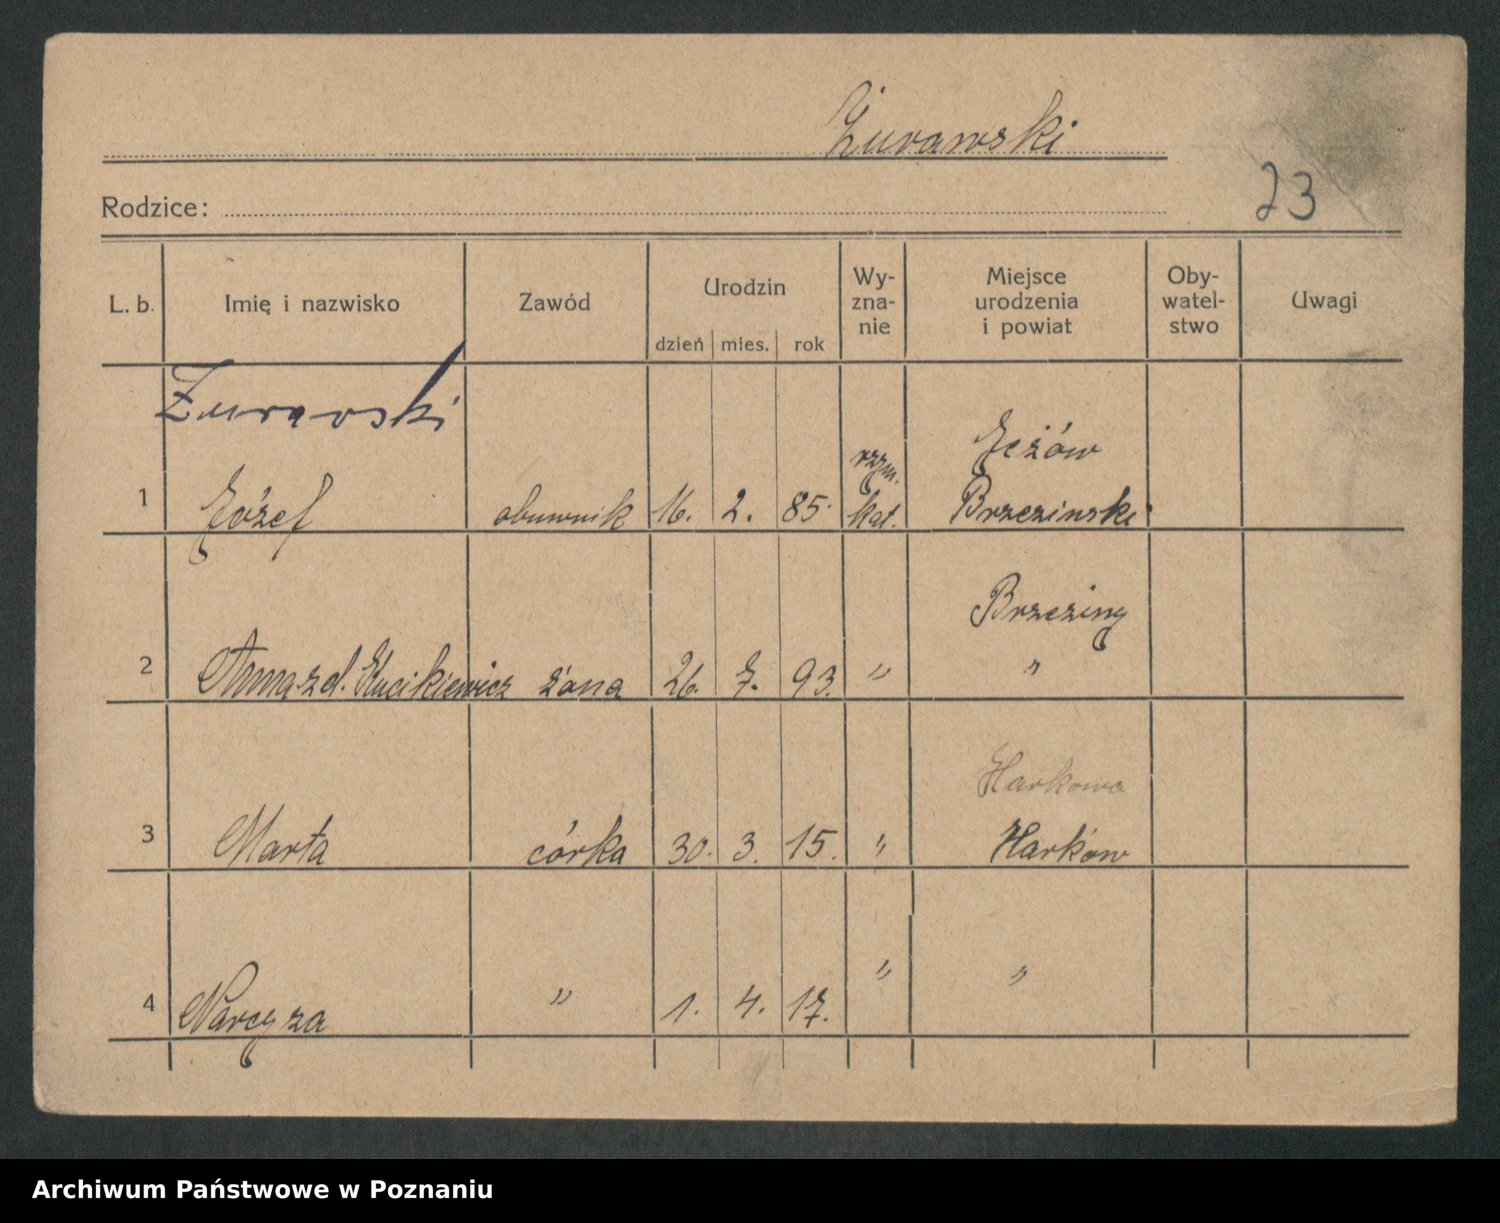 Żurawski
23
Rodzice:
L. b. Imię i nazwisko Zawód Urodzin dzień mies. rok Wy-zna-nie Miejsce urodzenia i powiat Oby-watel-stwo Uwagi
Żurawski
1 Józef obuwnik 16. 2. 85. rzym. kat. Jeżów Brzezinski
2 Anna zd. Kucikiewicz żona 26. 7. 93. " Brzeziny "
3 Marta córka 30. 3. 15. " Harkowa Harków
4 Narcyza " 1. 4. 17. " "
Archiwum Państwowe w Poznaniu